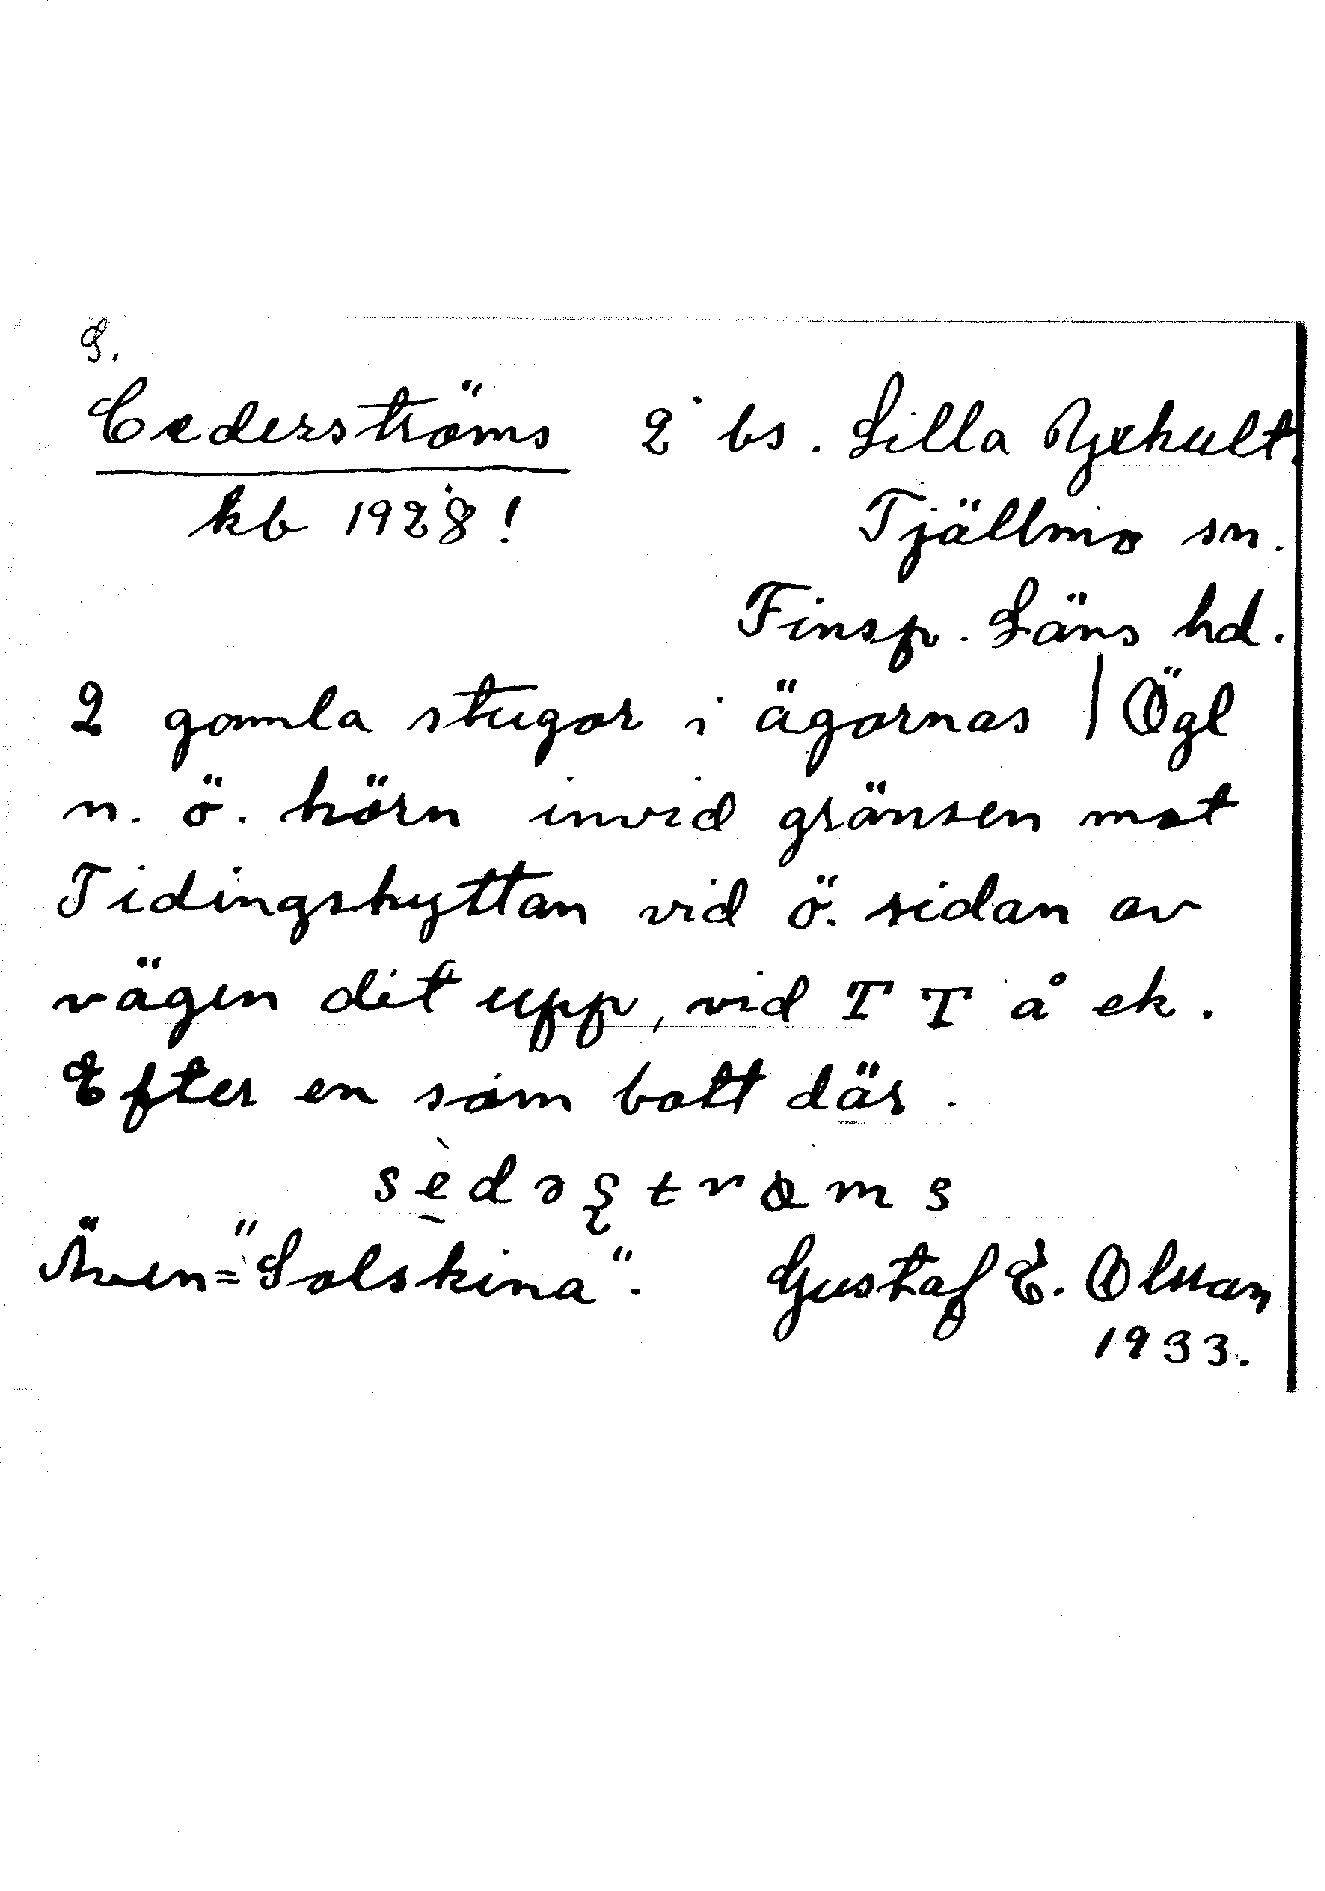 S.
Cederströms 2 bs. Lilla Yxhult.
kb 1928! Tjällmo sn.
Finsp. Läns hd.
2 gamla stugor i ägornas / Ögl
n. ö. hörn invid gränsen mot
Tidingshyttan vid ö. sidan av
vägen dit upp, vid T T å ek.
Efter en som bott där.
Även = "Solskina". Gustaf E. Olsson
1933.